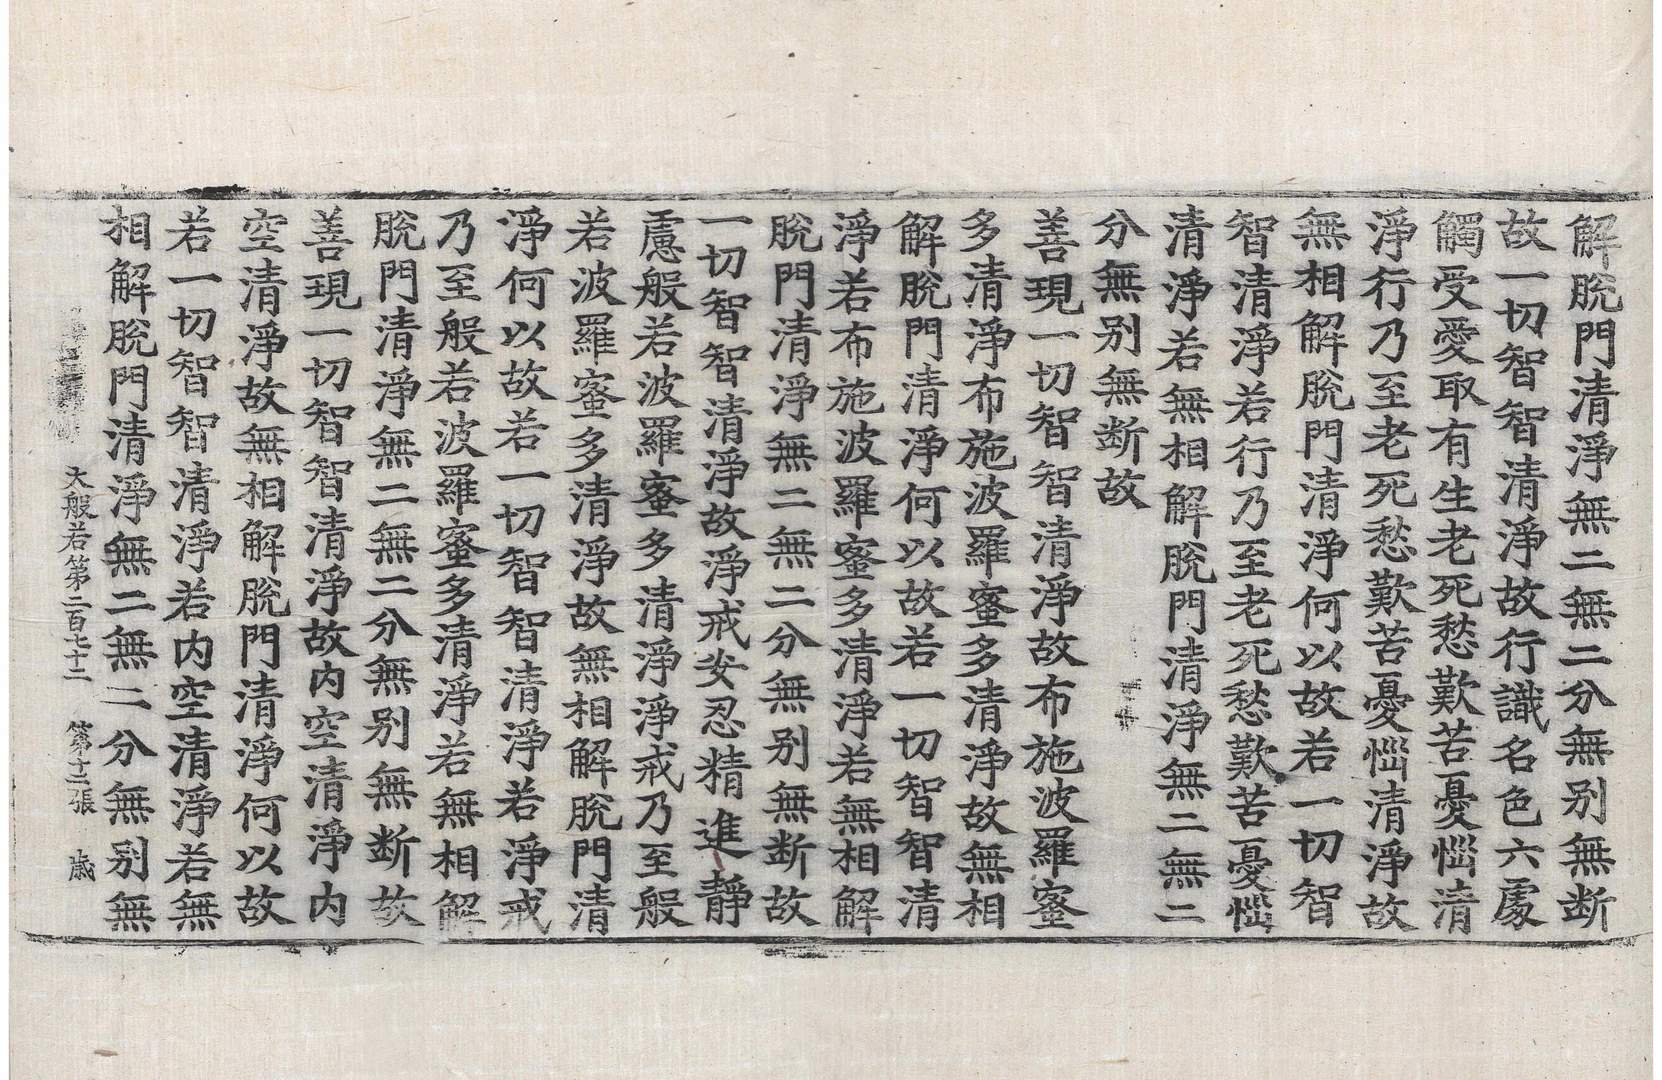 解脫門清淨無二無二分無別無断
故一切智智清淨故行識名色六處
觸受愛取有生老死愁歎苦憂惱清
淨行乃至老死愁歎苦憂惱清淨故
無相解脫門清淨何以故若一切智
智清淨若行乃至老死愁歎苦憂惱
清淨若無相解脫門清淨無二無二
分無別無断故
善現一切智智清淨故布施波羅蜜
多清淨布施波羅蜜多清淨故無相
解脫門清淨何以故若一切智智清
淨若布施波羅蜜多清淨若無相解
脫門清淨無二無二分無別無断故
一切智智清淨故淨戒安忍精進靜
慮般若波羅蜜多清淨淨戒乃至般
若波羅蜜多清淨故無相解脫門清
淨何以故若一切智智清淨若淨戒
乃至般若波羅蜜多清淨若無相解
脫門清淨無二無二分無別無断故
善現一切智智清淨故内空清淨内
空清淨故無相解脫門清淨何以故
若一切智智清淨若内空清淨若無
相解脫門清淨無二無二分無別無
大般若第二百七十二 第十二張 歳